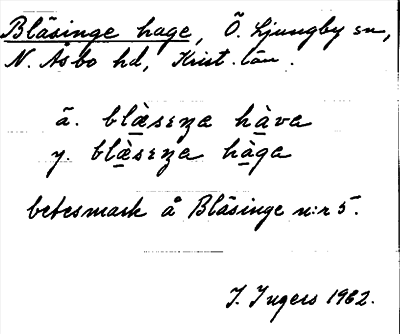 Bläsinge hage, Ö. Ljungby sn,
N. Åsbo hd, Krist. län.
ä. blæ̀sɛŋa hàva
y. blæ̀sɛŋa hàga
betesmark å Bläsinge n:r 5.
I. Ingers 1932.